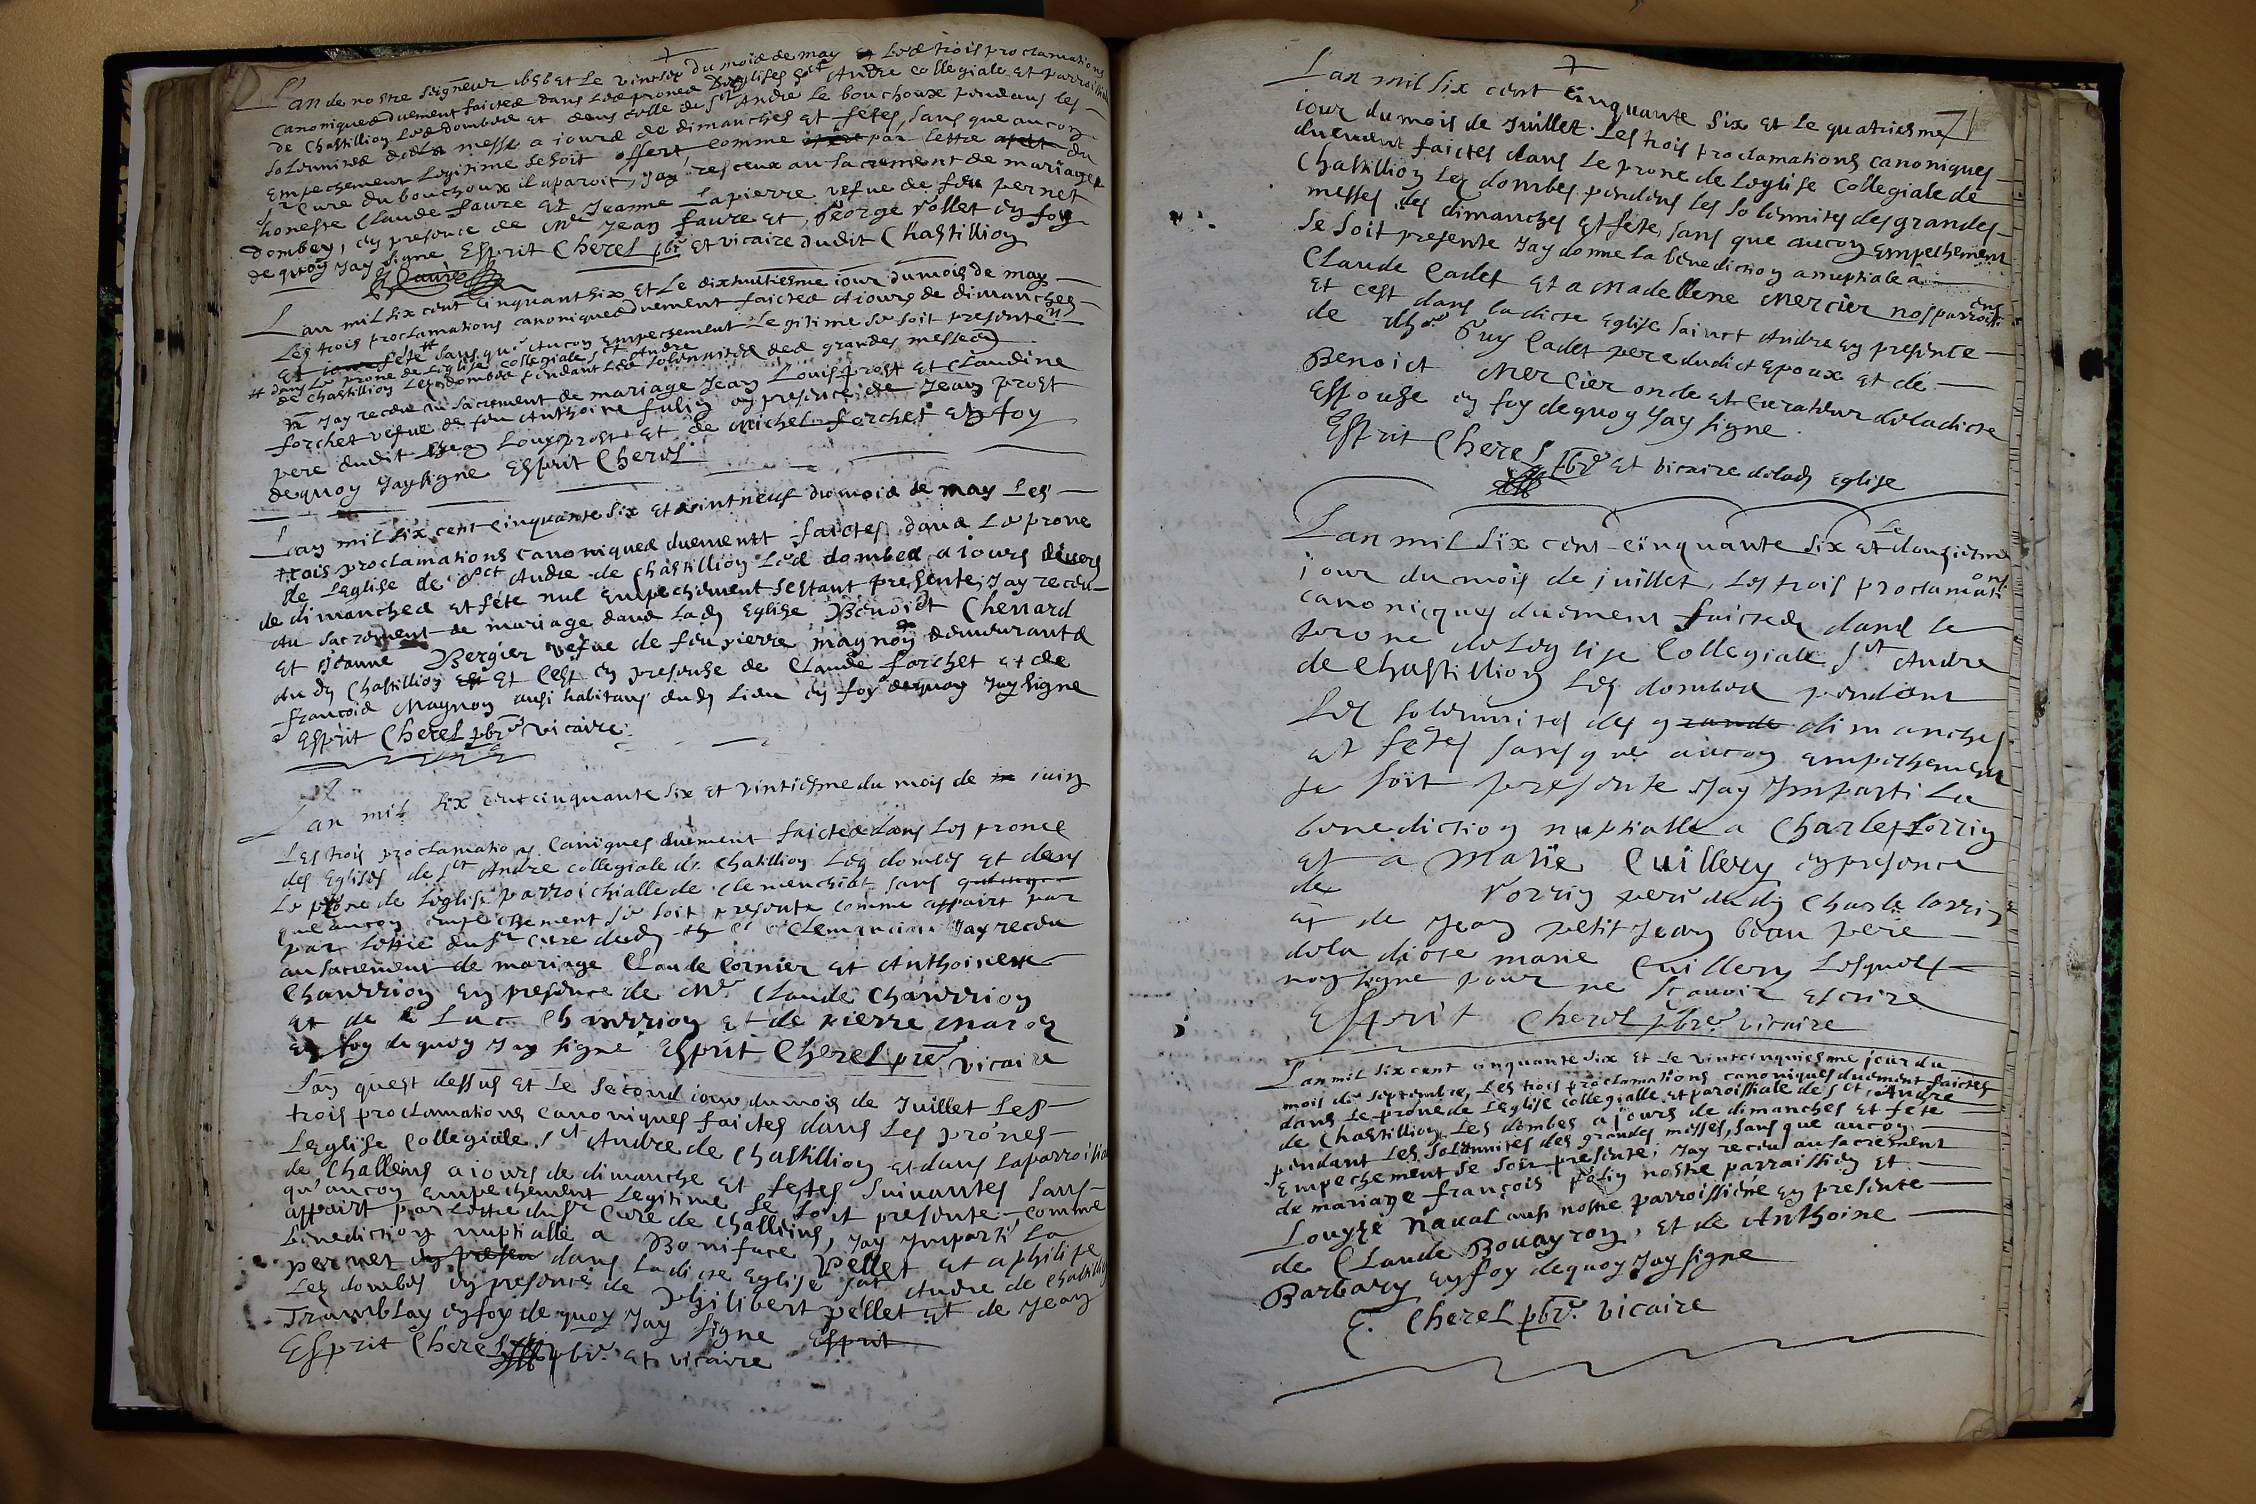 L'an de nostre seigneur 1656 et le vintsix du moid de may Led trois proclamations
canoniqued duement faicted dans Led proned
de Chastillion Led dombed et dans celle de sct Andre Le bouchoux pendans les
solemnited de la messe a iourd de dimanches et fetes, sans que aucoy
Empechement Legitime se soit offert comme par lettre du
sr Cure du bouchoux il aparoit, jay resceux au sacrement de mariage
honeste Claude faure et Jeanne Lapierre vefue de feu pernet
dombey, ey presence de Mre Jeay faure et, George vollet ey foy
de quoy Jay signe Esprit Cherel pbr Et vicaire dudit Chastillioy
Lan mil six cent cinquantsix et Le dixhuitiesme iour du mois de may
Les trois proclamations canoniqued duement faicted a iours de dimanches
et fete sans que aucoy Empechement Legitime se soit presente
# dans Le prone de Leglise collegiale sct Andre
de Chastillioy Led dombed pendant Led solemnited ded grandes messed
Jay receu au sacrement de mariage Jeay Louis prost et Claudine
forchet vefue de feu Anthoine fuliy ey presence de Jeay prost
pere dudit Jeay Louys prost et de Michel forchet ey foy
dequoy Jay signe Esprit Cherel
Lay mil six cent cinquante six et vintneuf du moid de may Les
trois proclamations canoniqued duementt faictes dand Le prone
de Leglise de sct Andre de Chastillioy Led dombed a iours divers
de dimanched et fete nul Empechement sestant presente, Jay receu
au sacrement de mariage dand lady Eglise Benoict Chenard
et Jeanne Bergier vefue de feu pierre magnoy demeurantd
du dy Chastillioy et Cest ey presense de Claude forchet et de
francoid Magnoy ausi habitans dudy Lieu ey foy dequoy Jay signe
Esprit Cherel pbr vicaire
Lan mil six cent cinquante six et vintiesme du mois de iuiy
Les trois proclamations caniques duement faicted dans Les proned
des Eglises de sct Andre collegiale de Chatillioy Les dombes et dans
Le prone de Leglise parroichialle de Clemenchiat sans
que aucoy empechement se soit presente comme appairt par
par Lettre du sr Cure dudy Jay receu
au sacrement de mariage Claude Cornier et Anthoinette
Chawrioy Ey presence de Mre Claude Chawrioy
et de Luc Chawrioy et de pierre maroy
ey foy de quoy Jay signe Esprit Cherel pre vicaire
Lay quest dessus et Le second iour du mois de Juillet Les
trois proclamations canoniques faictes dans Les prones
Leglise Collegiale sct Andre de Chastillioy et dans La parroissia
de Challeins a iours de dimanche et festes suivantes sans
qu'aucoy Empechement Legitime se soit presente comme
appairt par Lettre du sr Cure de Challeins, Jay Imparti La
benediction nuptialle a Boniface Pellet et a philipe
pernet dans La dicte Eglise sct Andre de Chastillioy
Les dombes ey presence de philibert pellet et de Jeay
Tramblay ey foy de quoy Jay signe Esprit
Esprit Cherel pbr et vicaire
71
Lan mil six cent cinquante six et le quatriesme
iour du mois de Juillet Les trois proclamations canoniques
duement faictes dans Le prone de Leglise Collegiale de
Chastillioy Les dombes pendens les solemnites des grandes
messes des dimanches et fete, sans que aucoy Empechement
se soit presente Jay donne la benediction nuptiale a
Claude Cadet et a Madellene Mercier nos parroissiens
et cest dans ladicte Eglise sainct Andre ey presence
de Guy Cadet pere dudict epoux et de
Benoict Mercier oncle et Curateur deladicte
Espouse ey foy dequoy Jay signe
Esprit Cherel pbr et vicaire delady Eglise
Lan mil six cent cinquante six et Le douziesme
jour du mois de juillet, Les trois proclamations
canonicques duement faicted dand Le
prone de Leglise Collegiale sct Andre
de Chastillioy Les dombed pendant
Les solemnites des grande dimanches
et fetes sans que aucoy Empechement
se soit presente Jay Imparti La
benediction nuptialle a Charles Lorriy
et a Marie Cuillery ey presence
de Lorriy pere dudy Charle Lorriy
et de Jeay petit Jeay beau pere
dela dicte marie Cuillery Lesquels
noy signe pour ne scauoir escrire
Esprit Cherel pbr vicaire
Lan mil six cent cinquante six et Le vintcinquiesme jour du
mois de Septembre, Les trois proclamations canoniques duement faictes
dans Le prone de Leglise collegialle et paroissiale de sct Andre
de Chastillioy Les dombes a jours de dimanches et fete
pendant Les solemnites des grandes messes, sans que aucoy
Empechement se soit presente, Jay receu au sacrement
de mariage françois poliy nostre parraissiey et
Louyse Naual ausi nostre parroissiéne ey presence
de Claude Bouayroy, et de Anthoine
Barbary ey foy dequoy Jay signe
E. Cherel pbr. vicaire